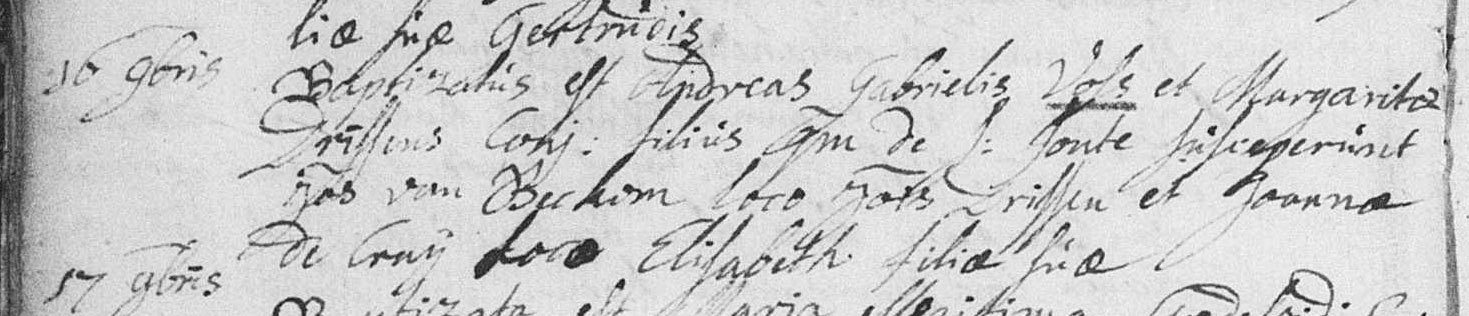 liæ suæ Gertrudis
16 9bris Baptizatus est Andreas Gabrielis Vols et Margaritæ
Drissens Conj: filius qm de S: fonte susceperunt
Jos van Beckom loco Jois Drissen et Joanna
de Cruÿ loco Elisabeth filiæ suæ
17 9bris Baptizata est Maria